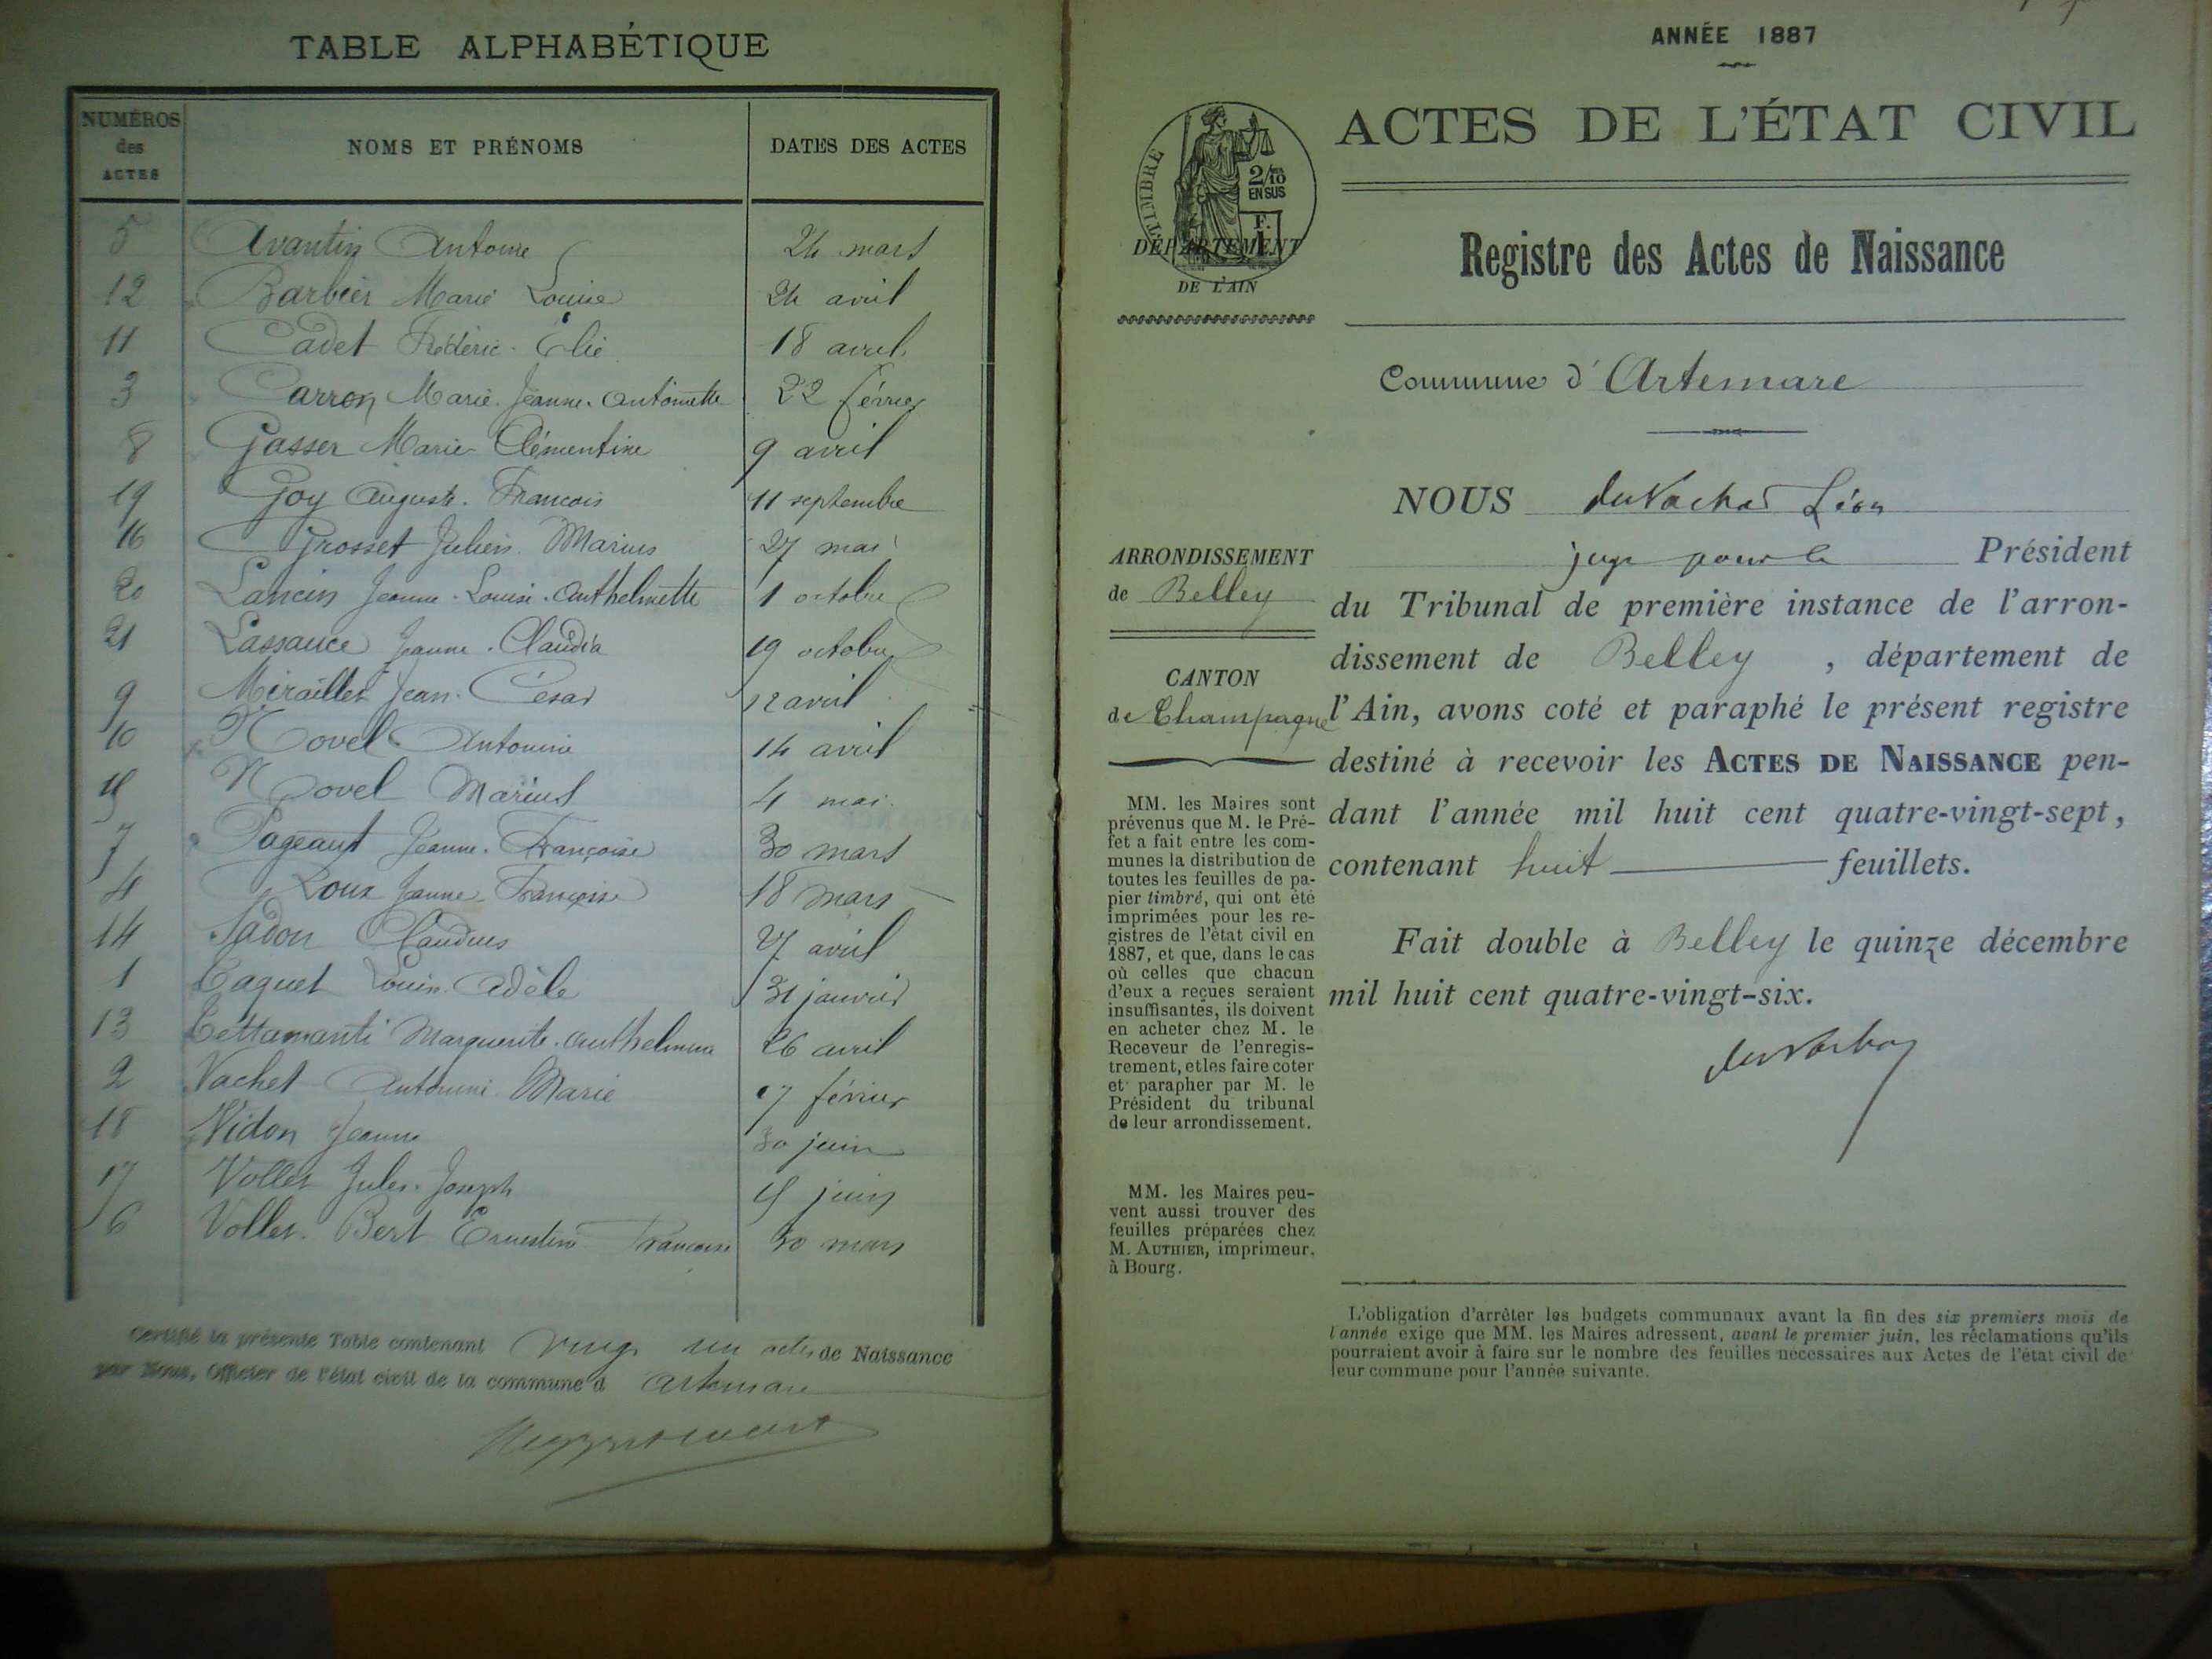 TABLE ALPHABÉTIQUE
NUMÉROS des ACTES
NOMS ET PRÉNOMS
DATES DES ACTES
5 Avantin Antoine 24 mars
12 Barbier Marie Louise 24 avril
11 Cadet Frédéric Élie 18 avril
3 Carron Marie Jeanne Antoinette 22 février
8 Gasser Marie Clémentine 9 avril
19 Goy Auguste François 11 septembre
16 Grosset Julien Marius 27 mai
20 Lancin Jeanne Louise Anthelmette 1 octobre
21 Lassauce Jeanne Claudia 19 octobre
9 Mirailler Jean César 12 avril
10 Novel Antonine 14 avril
Novel Marius 4 mai
7 Pageaut Jeanne Françoise 30 mars
4 Roux Jeanne Françoise 18 mars
14 Sadon Claudius 27 avril
1 Taquet Louis Adèle 31 janvier
13 Tettamanti Marguerite Anthelmine 26 avril
2 Vachet Antonine Marie 17 février
18 Vidon Jeanne 30 juin
17 Vollet Jules Joseph juin
6 Vollet Bert Ernestine Françoise 30 mars
Certifié la présente Table contenant Vingt un actes de Naissance
par Nous, Officier de l'état civil de la commune d Artemare
ANNÉE 1887
TIMBRE
2/10
EN SUS
F.
1
DÉPARTEMENT
DE L'AIN
ACTES DE L'ÉTAT CIVIL
Registre des Actes de Naissance
Commune d'Artemare
ARRONDISSEMENT
de Belley
CANTON
de Champagne
MM. les Maires sont
prévenus que M. le Pré-
fet a fait entre les com-
munes la distribution de
toutes les feuilles de pa-
pier timbré, qui ont été
imprimées pour les re-
gistres de l'état civil en
1887, et que, dans le cas
où celles que chacun
d'eux a reçues seraient
insuffisantes, ils doivent
en acheter chez M. le
Receveur de l'enregis-
trement, et les faire coter
et parapher par M. le
Président du tribunal
de leur arrondissement.
MM. les Maires peu-
vent aussi trouver des
feuilles préparées chez
M. AUTHIER, imprimeur,
à Bourg.
NOUS Léon
juge pour le Président
du Tribunal de première instance de l'arron-
dissement de Belley, département de
l'Ain, avons coté et paraphé le présent registre
destiné à recevoir les ACTES DE NAISSANCE pen-
dant l'année mil huit cent quatre-vingt-sept,
contenant huit feuillets.
Fait double à Belley le quinze décembre
mil huit cent quatre-vingt-six.
L'obligation d'arrêter les budgets communaux avant la fin des six premiers mois de
l'année exige que MM. les Maires adressent, avant le premier juin, les réclamations qu'ils
pourraient avoir à faire sur le nombre des feuilles nécessaires aux Actes de l'état civil de
leur commune pour l'année suivante.